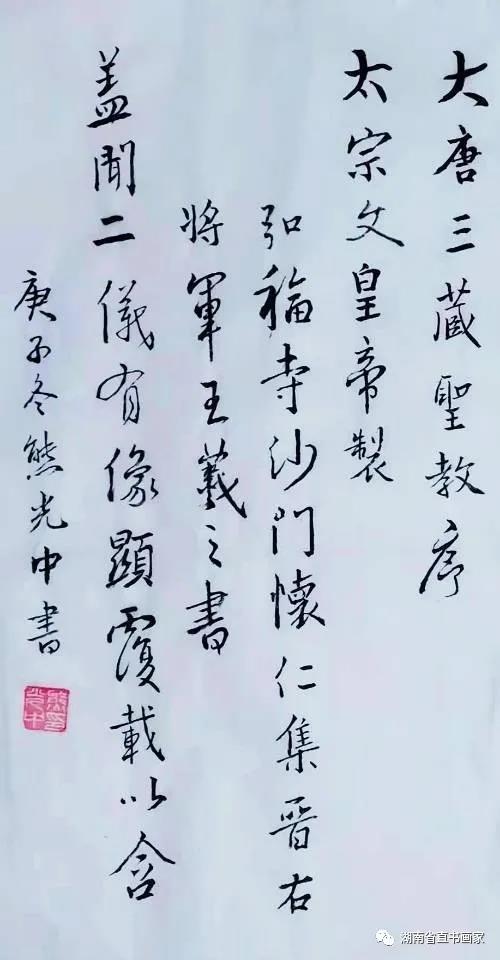 大唐三藏聖教序
太宗文皇帝製
弘福寺沙門懷仁集晋右
將軍王羲之書
盖聞二儀有像顯覆載以含
庚子冬熊光中書
湖南省直书画家